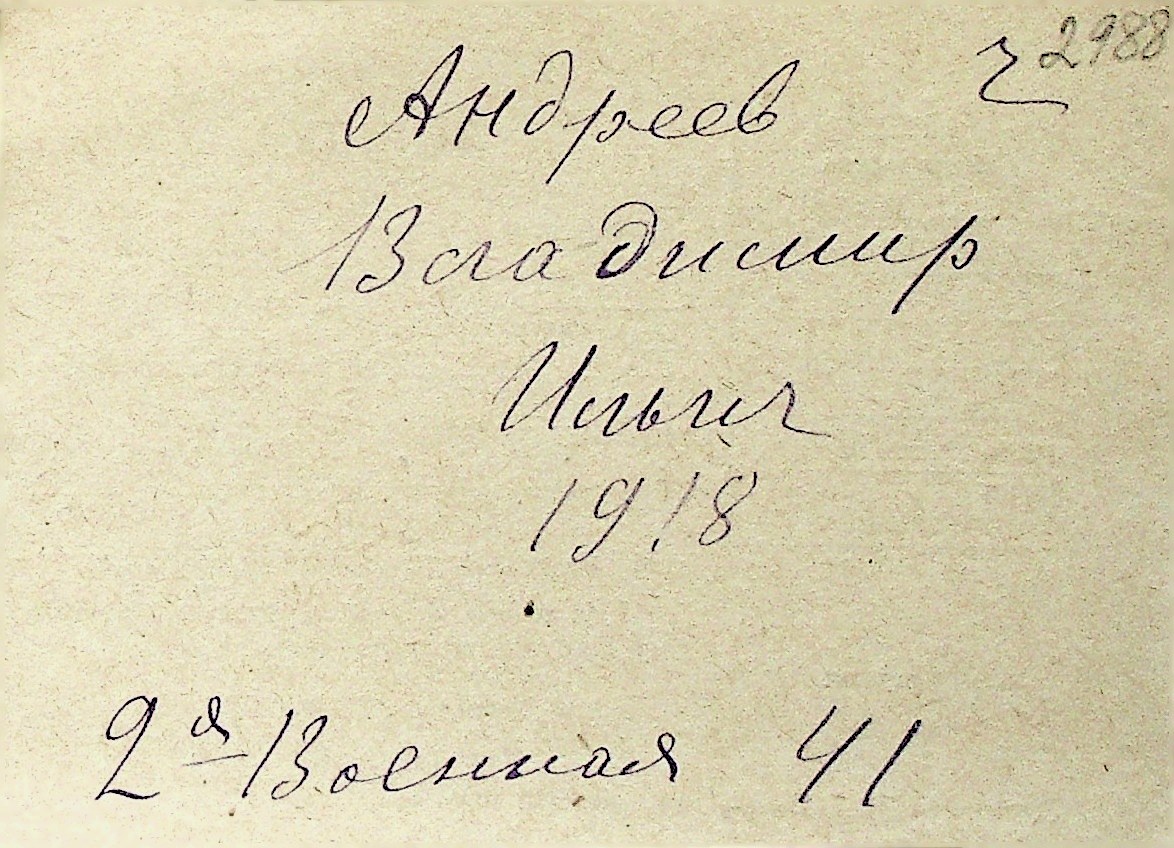 2988
ч
Андреев
Владимир
Ильич
1918
2я Военная 41